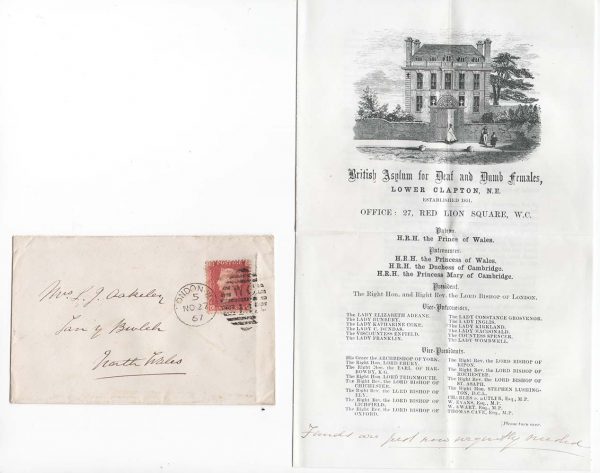 LONDON
5
NO 3
67
W.C
Mrs L. J. Oakeley
Tan y Bwlch
North Wales
British Asylum for Deaf and Dumb Females,
LOWER CLAPTON, N.E.
ESTABLISHED 1851.
OFFICE: 27, RED LION SQUARE, W.C.
Patron.
H.R.H. the Prince of Wales.
Patronesses.
H.R.H. the Princess of Wales.
H.R.H. the Duchess of Cambridge.
H.R.H. the Princess Mary of Cambridge.
President.
The Right Hon. and Right Rev. the LORD BISHOP OF LONDON.
Vice-Patronesses,
The LADY ELIZABETH ADEANE.
The LADY BUNBURY.
The LADY KATHARINE COKE.
The LADY C. DUNDAS.
The VISCOUNTESS ENFIELD.
The LADY FRANKLIN.
The LADY CONSTANCE GROSVENOR.
The LADY INGLIS.
The LADY KIRKLAND.
The LADY MACDONALD.
The COUNTESS SPENCER.
The LADY WOMBWELL.
Vice-Presidents.
His Grace the ARCHBISHOP OF YORK.
The Right Hon. LORD EBURY.
The Right Hon. the EARL OF HAR-
ROWBY, K.G.
The Right Hon. LORD TEIGNMOUTH.
The Right Rev. the LORD BISHOP OF
CHICHESTER.
The Right Rev. the LORD BISHOP OF
ELY.
The Right Rev. the LORD BISHOP OF
LICHFIELD.
The Right Rev. the LORD BISHOP OF
OXFORD.
The Right Rev. the LORD BISHOP OF
RIPON.
The Right Rev. the LORD BISHOP OF
ROCHESTER.
The Right Rev. the LORD BISHOP OF
ST. ASAPH.
The Right Hon. STEPHEN LUSHING-
TON, D.C.L.
CHARLES S. BUTLER, Esq., M.P.
W. EVANS, Esq., M.P.
W. EWART, Esq., M.P.
THOMAS CAVE, Esq., M.P.
[Please turn over.
Funds are just now urgently needed